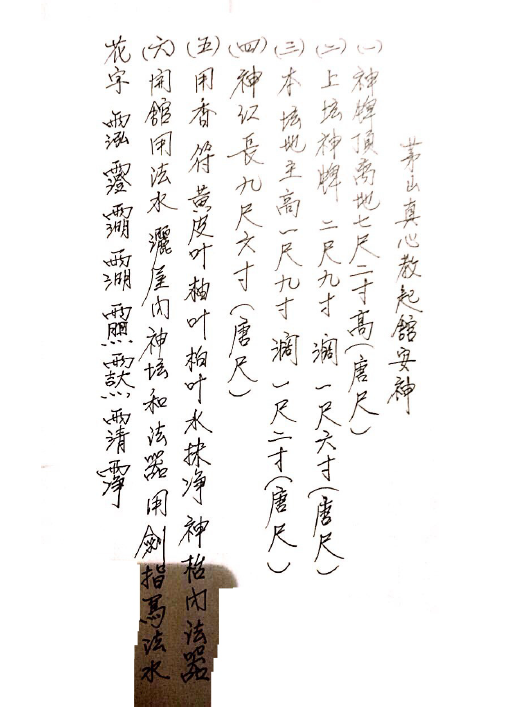 茅山真心教起舘安神
(一)神牌頂离地七尺二寸高(唐尺)
(二)上坛神牌二尺九寸濶一尺六寸(唐尺)
(三)本坛地主高一尺九寸濶一尺二寸(唐尺)
(四)神红長九尺六寸(唐尺)
(五)用香符黄皮叶柚叶柏叶水抹净神枱内法器
(六)開舘用法水灑屋内神坛和法器用劍指写法水
花字